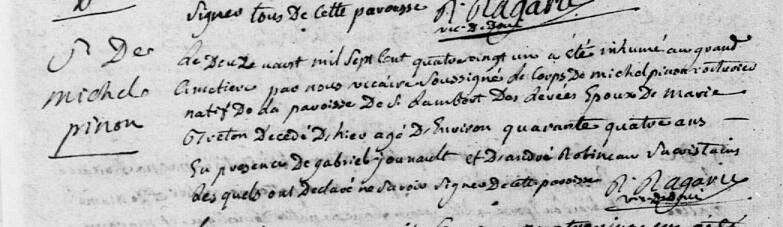 signer tous de cette paroisse R. Ragarie
vic. de Doué
Sr De
michel
pinon
Le Deuze aoust mil sept Cent quatrevingt un a été inhumé au grand
Cimetiere par nous vicaire Soussigné le Corps De michel pinon
natif De la paroisse De St Lambert Des Levées Epoux De Marie
Breton Decedé D'hier agé D'Environ quarante quatre ans
En presence De gabriel et D'andré Robineau Sacristains
lesquels ont Declaré ne savoir signer De cette paroisse R. Ragarie
vic. de Doué